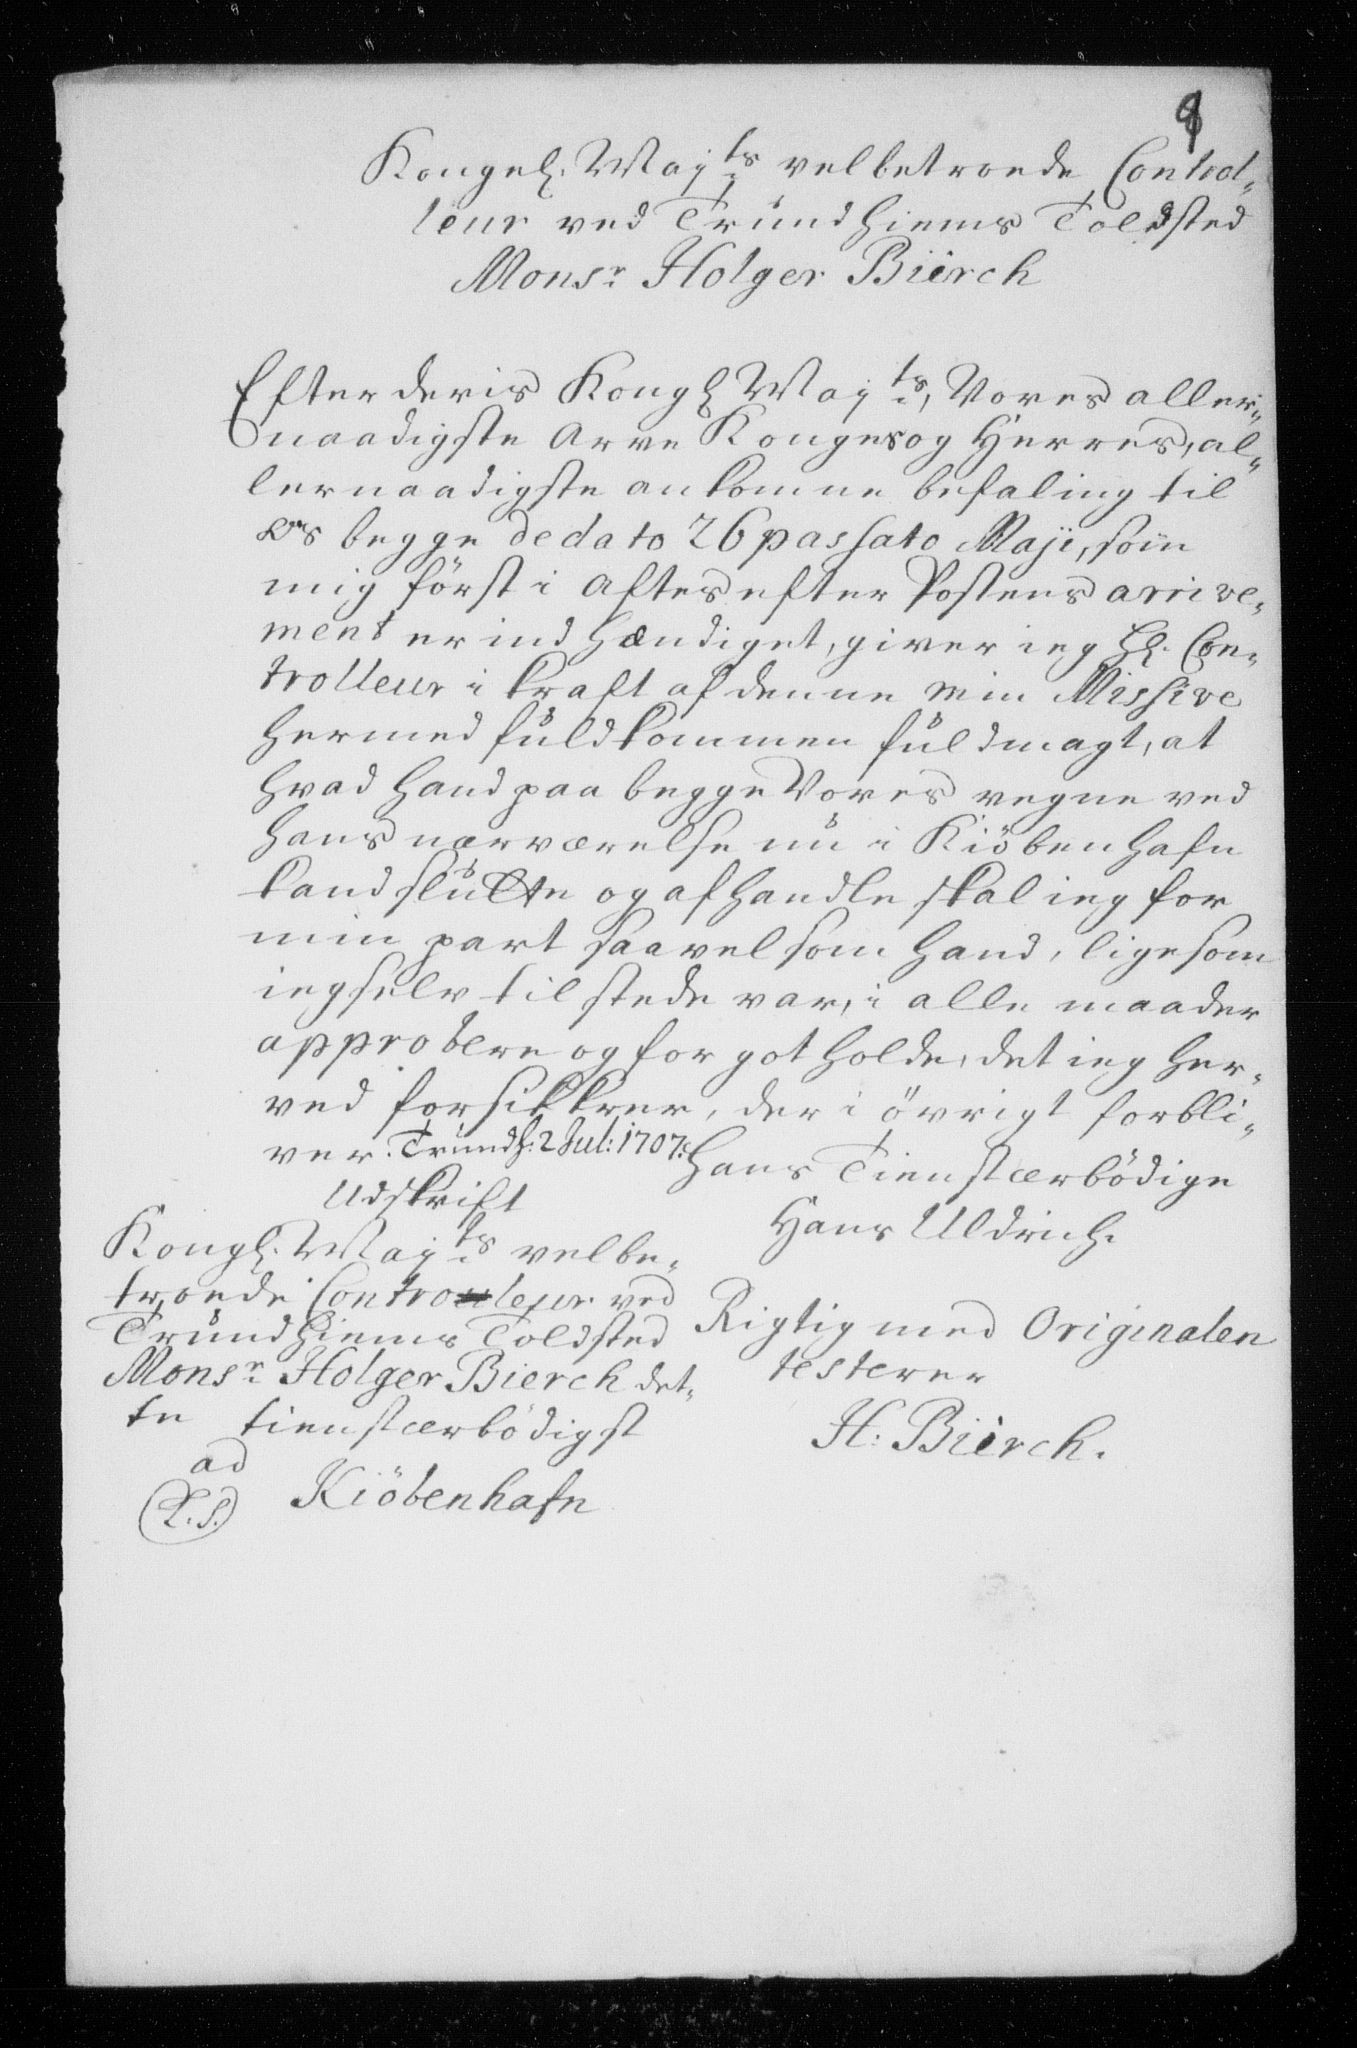 8
Kongel. Maj:ts velbetroede Control-
leur ved Trundhiems Toldsted
Monsr: Holger Bierch
Efter deris Kongl Maj:ts, Vores aller-
naadigste Arve Konges og Herres, al-
lernaadigste ankomne befaling til
os begge de dato 26 passato Maji, som
mig först i Aftes efter Postens arrive-
ment er indhændiget, giver ieg Hl. Con-
trolleur i kraft af denne min Missive
hermed fuldkommen fuldmagt, at
hvad hand paa begge Vores vegne ved
hans nærværelse nu i Kiöbenhafn
kand slutte og afhandle skal ieg for
min part saavelsom hand, ligesom
ieg selv tilstede var, i alle maader
approbere og for got holde, det ieg her-
ved forsikkrer, der i övrigt forbli-
ver. Trundh: 2 Jul: 1707.
Hans Tienstærbödige
Hans Uldrich.
Udskrift
Kongl. Maj:ts velbe-
troede Controleur ved
Trundhiems Toldsted
Monsr: Holger Bierch det-
te tienstærbödigst
ad
(L.S.) Kiöbenhafn
Rigtig med Originalen
testerer
H: Bierch.